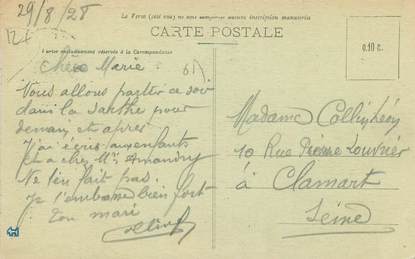 29/8/28
Le Verso (côté vue) ne doit comporter aucune inscription manuscrite
CARTE POSTALE
Partie exclusivement réservée à la Correspondance
0.10 c.
Chère Marie
Vous allons partir ce soir
dans la Sarthe pour
demain et après
J'ai écris aux enfants
et à chez Mrs Amandry
Ne t'en fait pas.
Je t'embrasse bien fort
Ton mari
Madame
10 Rue Pierre Louvrier
à Clamart
Seine